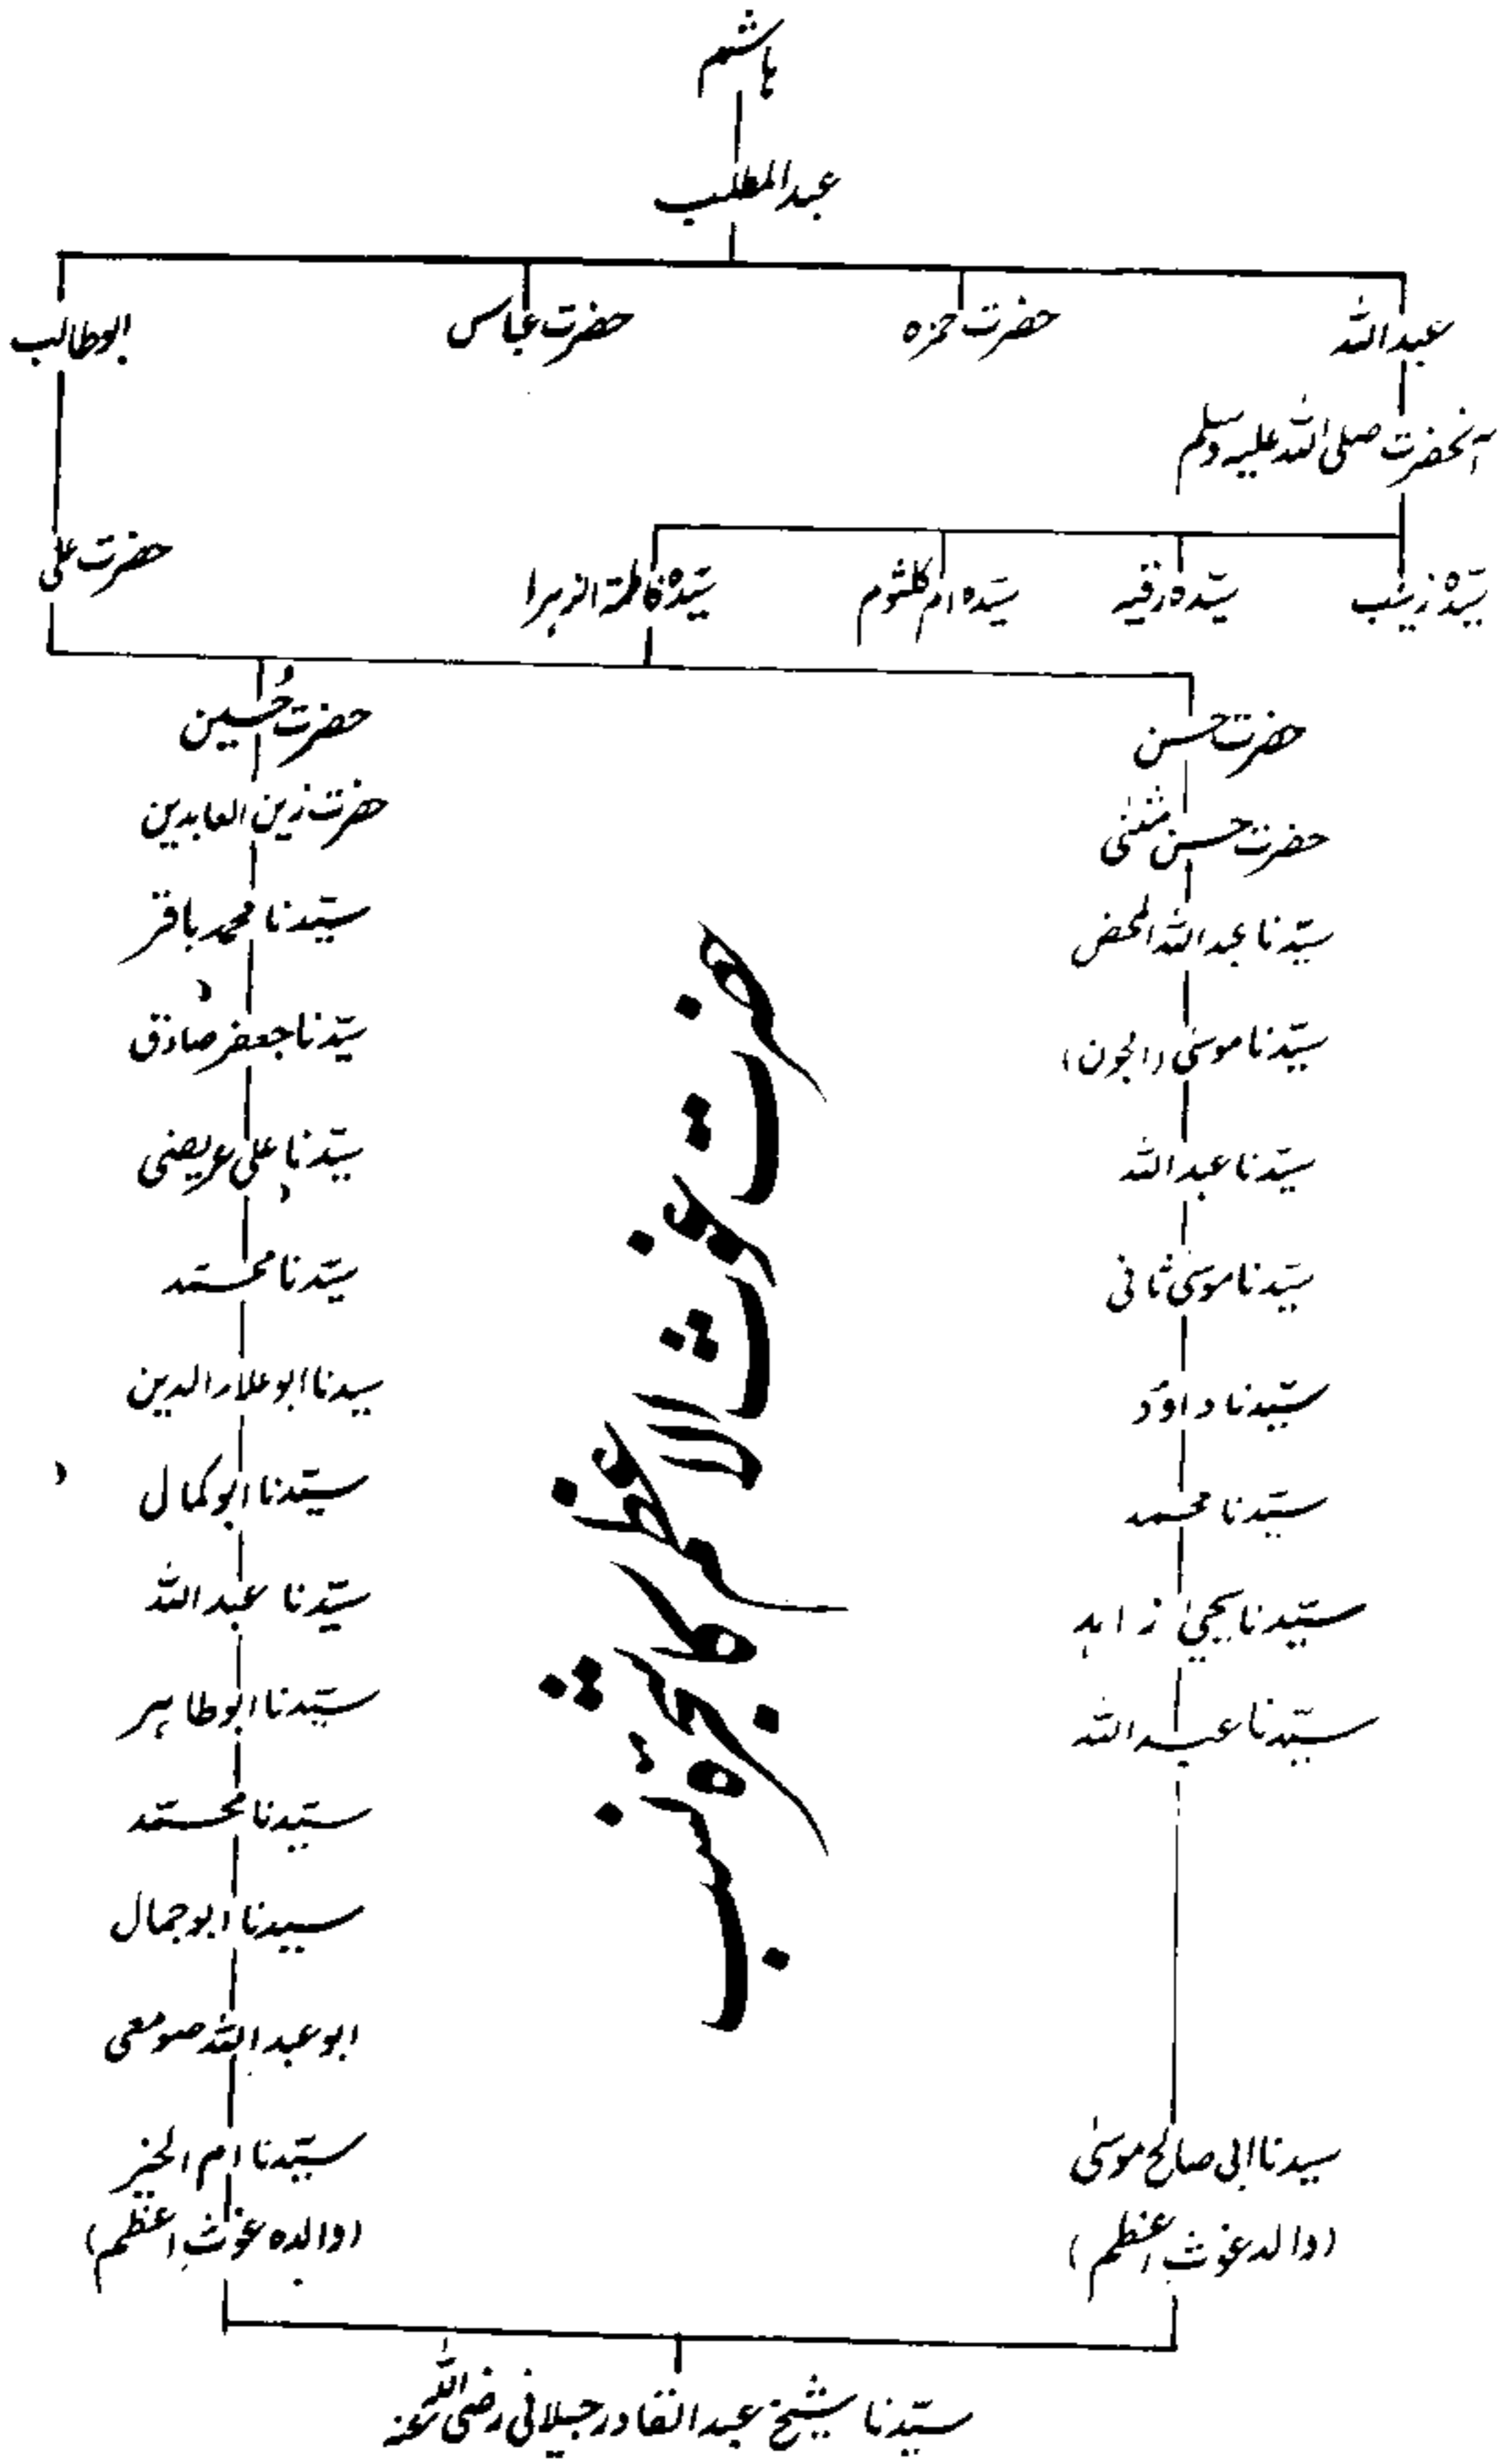 ہاشم
عبدالمطلب
عبداللہ
حضرت حمزہ
حضرت عباس
ابوطالب
آنحضرت صلی اللہ علیہ وسلم
سیّدہ زینب
سیّدہ رقیہ
سیّدہ ام کلثوم
سیّدہ فاطمۃ الزہرا
حضرت علی
حضرت حسن
حضرت حسن مثنیٰ
سیّدنا عبداللہ المحض
سیّدنا موسیٰ (الجون)
سیّدنا عبداللہ
سیّدنا موسیٰ ثانی
سیّدنا داؤد
سیّدنا محمد
سیّدنا یحییٰ زاہد
سیّدنا عبداللہ
سیدنا ابی صالح موسیٰ
(والد غوث اعظم)
حضرت حُسین
حضرت زین العابدین
سیّدنا محمد باقر
سیّدنا جعفر صادق
سیّدنا علی عریضی
سیّدنا محمّد
سیدنا ابو علاء الدین
سیّدنا ابو کمال
سیّدنا عبداللہ
سیّدنا ابو طاہر
سیّدنا محمّد
سیدنا ابو جمال
ابو عبداللہ صومعی
سیّدنا ام الخیر
(والدہ غوثِ اعظم)
حضرت غوث الاعظم کا شجرۂ نسب
سیّدنا شیخ عبدالقادر جیلانی رضی اللہ عنہ